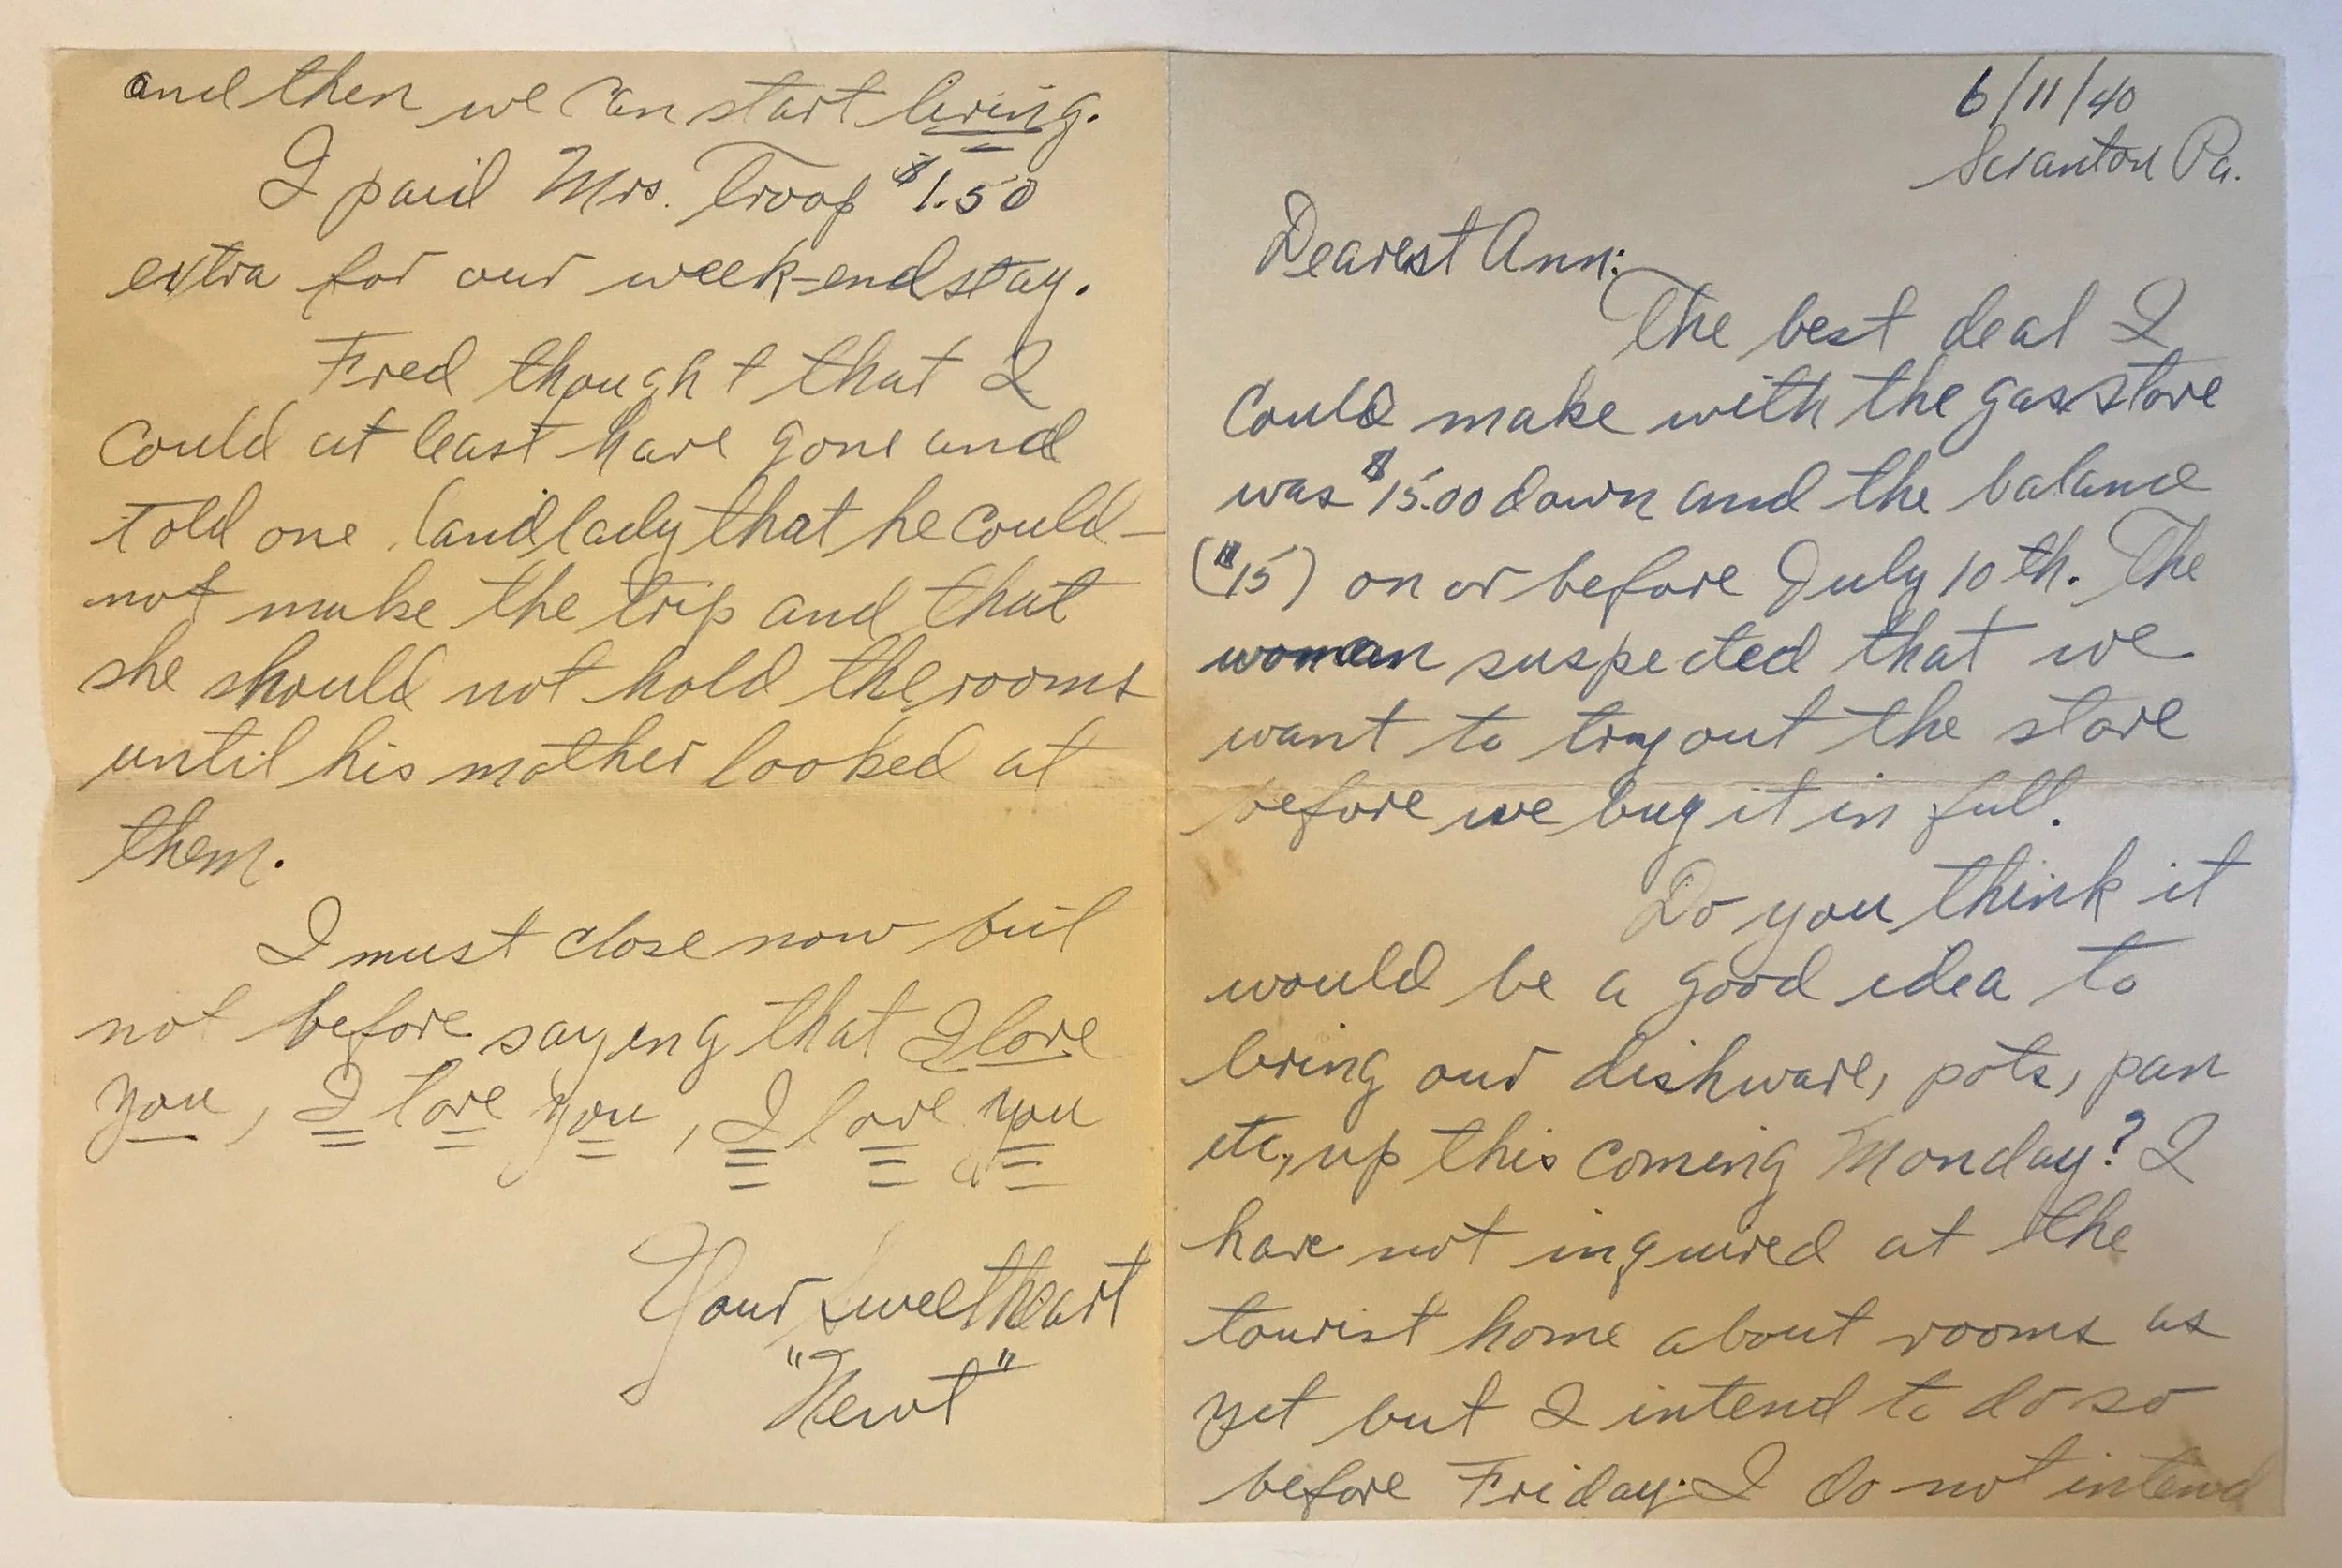 6/11/40
Scranton Pa.
Dearest Ann:
The best deal I
could make with the gas stove
was $15.00 down and the balance
($15) on or before July 10th. The
woman suspected that we
want to try out the stove
before we buy it in full.
Do you think it
would be a good idea to
bring our dishware, pots, pan
etc, up this coming Monday? I
have not inquired at the
tourist home about rooms as
yet but I intend to do so
before Friday. I do not intend
and then we can start living.
I paid Mrs. Troop $1.50
extra for our week-end stay.
Fred thought that I
could at least have gone and
told one landlady that he could-
not make the trip and that
she should not hold the rooms
until his mother looked at
them.
I must close now but
not before saying that I love
you, I love you, I love you
Your Sweetheart
"Newt"